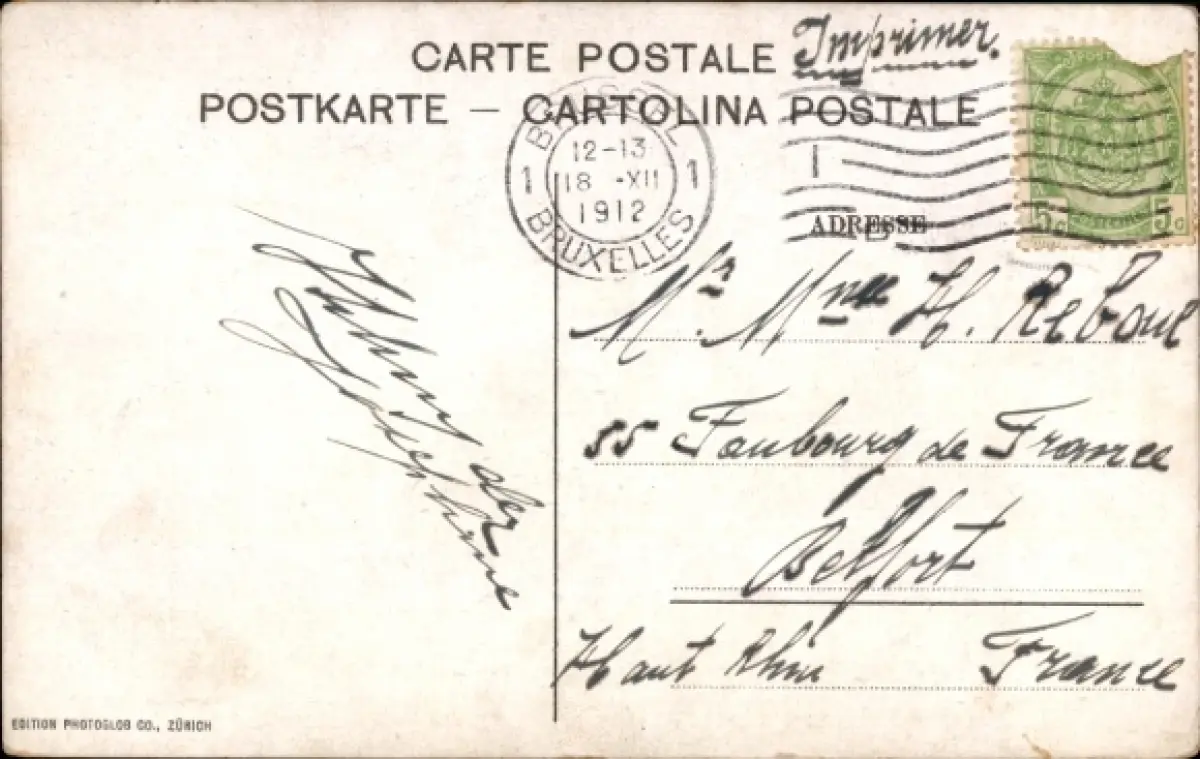 CARTE POSTALE
Imprimer.
POSTKARTE — CARTOLINA POSTALE
BRUSSEL
12-13
1 18 -XII 1
1912
BRUXELLES
5c 5c
ADRESSE
Mr. Mme H. Reboul
55 Faubourg de France
Belfort
Haut Rhin France
EDITION PHOTOGLOB CO., ZÜRICH